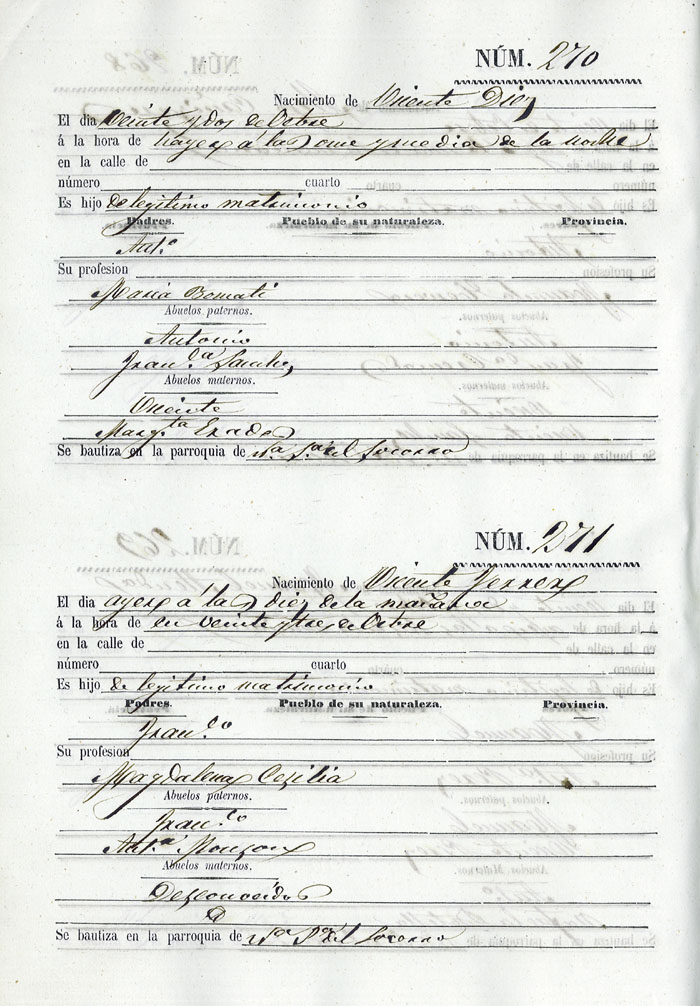 NÚM. 270
Nacimiento de Vicente Diez
El dia veinte y dos de Octbre
á la hora de hayer a las once y media de la noche
en la calle de
número cuarto
Es hijo de legitimo matrimonio
Padres. Pueblo de su naturaleza. Provincia.
Ant.º
Su profesion
Maria Bernati
Abuelos paternos.
Antonio
Fran.ca Sanchez
Abuelos maternos.
Vicente
Marg.ta
Se bautiza en la parroquia de N.ª S.ª del Socorro
NÚM. 271
Nacimiento de Vicente Ferrer
El dia ayer a las diez de la mañana
á la hora de en veinte y tres de Octbre
en la calle de
número cuarto
Es hijo de legitimo matrimonio
Padres. Pueblo de su naturaleza. Provincia.
Fran.co
Su profesion
Magdalena Cezilia
Abuelos paternos.
Fran.co
Ant.ª Monzon
Abuelos maternos.
Desconocidos
Se bautiza en la parroquia de N.ª S.ª del Socorro